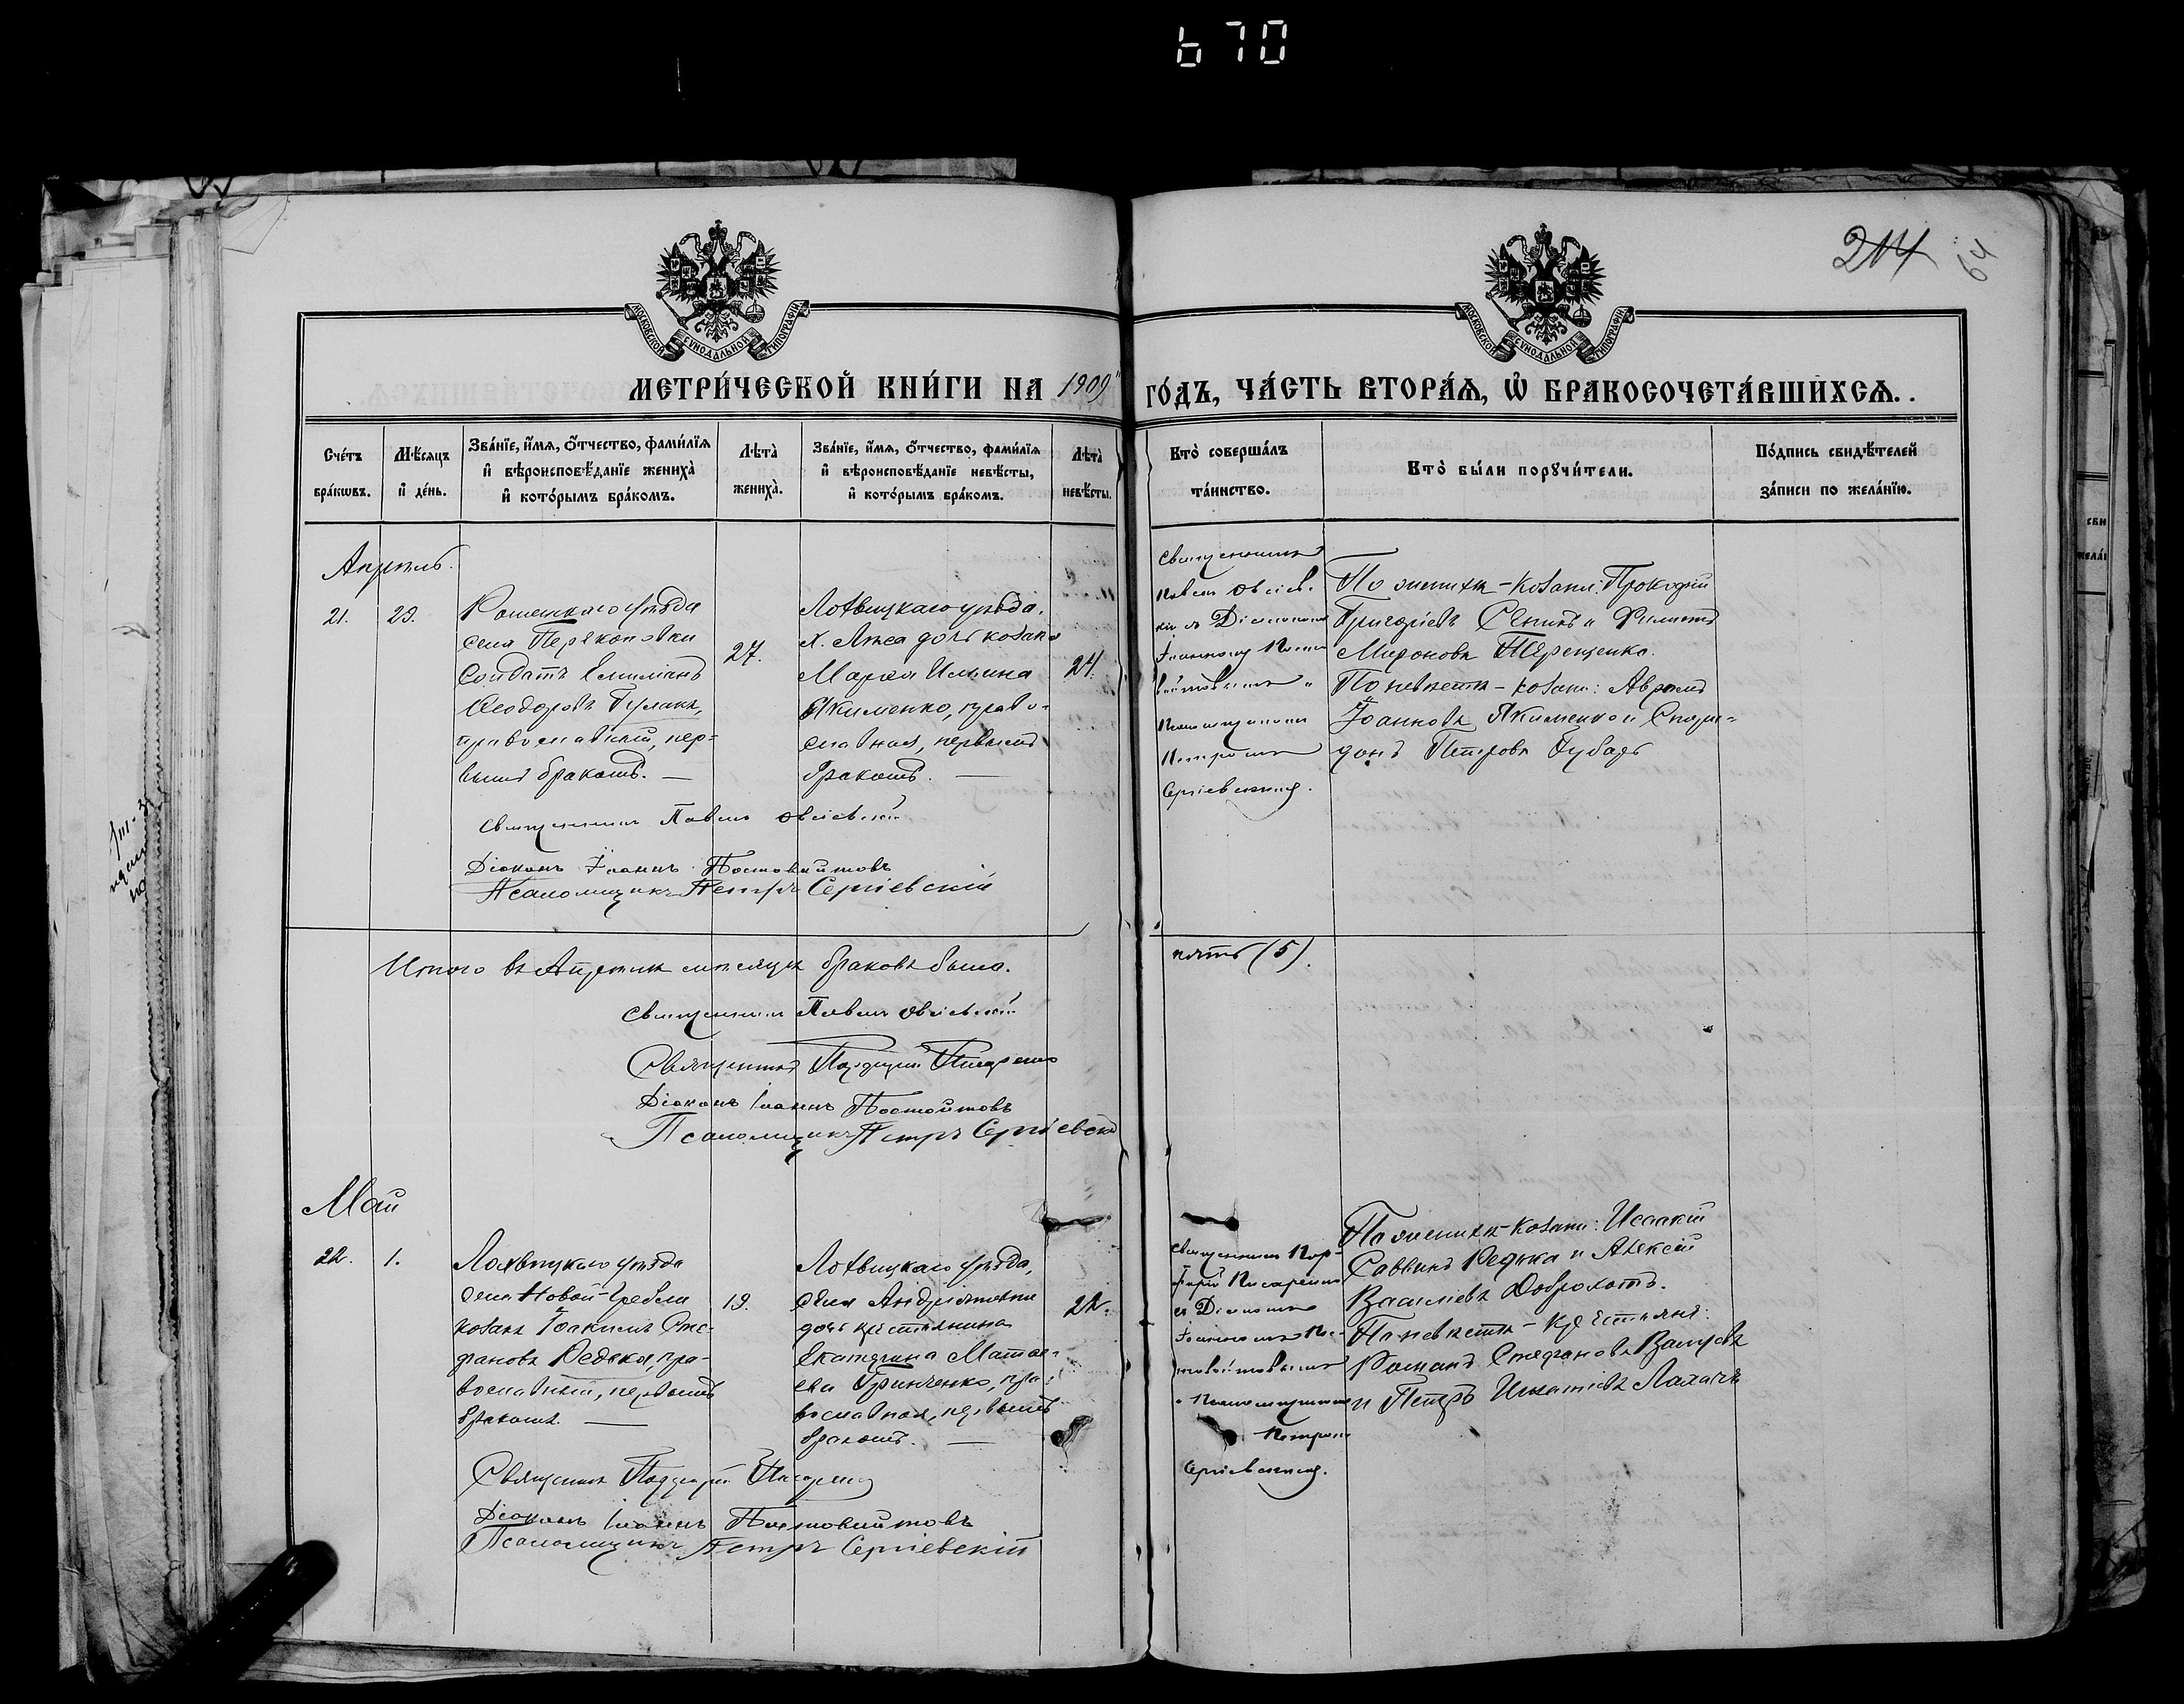 670
214
64
МОСКОВСКОЙ СУНОДАЛЬНОЙ ТИПОГРАФІИ
МОСКОВСКОЙ СУНОДАЛЬНОЙ ТИПОГРАФІИ
МЕТРИ́ЧЕСКОЙ КНИ́ГИ НА 1909 ГО́ДЪ, ЧА́СТЬ ВТОРА́Ѧ, Ѡ БРАКОСОЧЕТА́ВШИХСѦ.
Сче́тъ бра́кωвъ.
Мѣ́сяцъ и де́нь.
Зва́нїе, и́мѧ, о́тчество, фами́лїѧ
и вѣроисповѣ́данїе жениха̀
и кото́рымъ бра́комъ.
Лѣта̀ жениха̀.
Зва́нїе, и́мѧ, о́тчество, фами́лїѧ
и вѣроисповѣ́данїе невѣ́сты,
и кото́рымъ бра́комъ.
Лѣта̀ невѣ́сты.
Кто̀ соверша́лъ
та́инство.
Кто̀ бы́ли порꙋчи́тели.
По́дпись свидѣ́телей
за́писи по жела́нїю.
Апрѣль.
21.
Роменскаго уѣзда
села Перекоповки
солдатъ Емиліанъ
Ѳеодоровъ
православный, пер-
вымъ бракомъ.
27.
Лохвицкаго уѣзда,
х. дочь козака
Марѳа Ильина
Якименко, право-
славная, первымъ
бракомъ.
24.
Священникъ
Павелъ Овсіев-
кій съ Діакономъ
Іоанномъ Посто
войтовымъ и
Псаломщикомъ
Петромъ
Сергіевскимъ.
По женихѣ - козаки: Прокофій
Григоріевъ и Филиппъ
Мироновъ Терещенко.
По невѣстѣ - козаки: Аврамъ
Іоанновъ Якименко и Спири-
донъ Петровъ Губарь
Священникъ Павелъ Овсіевскій
Діаконъ Іоаннъ Постовойтовъ
Псаломщикъ Петръ Сергіевскій
Итого въ Апрѣлѣ мѣсяцѣ браковъ было.
пять (5).
Священникъ Павелъ Овсіевскій
Священникъ Порфирій Писаренко
Діаконъ Іоаннъ Постовойтовъ
Псаломщикъ Петръ Сергіевскій
Май
22.
1.
Лохвицкаго уѣзда
села Новой-Гребли
козакъ Іоакимъ Сте-
фановъ Редька, пра-
вославный, первымъ
бракомъ.
19.
Лохвицкаго уѣзда,
села Андріяшевки
дочь крестьянина
Екатерина Матѳе-
ева Гринченко, пра-
вославная, первымъ
бракомъ.
22.
Священникъ Пор-
фирій Писаренко
съ Діакономъ
Іоанномъ По-
стовойтовымъ
и Псаломщикомъ
Петромъ
Сергіевскимъ.
По женихѣ - козаки: Исаакій
Саввинъ Редька и Алексій
Василіевъ Доброхотъ.
По невѣстѣ - крестьяне:
Романъ Стефановъ
и Петръ Игнатіевъ
Священникъ Порфирій Писаренко
Діаконъ Іоаннъ Постовойтовъ
Псаломщикъ Петръ Сергіевскій